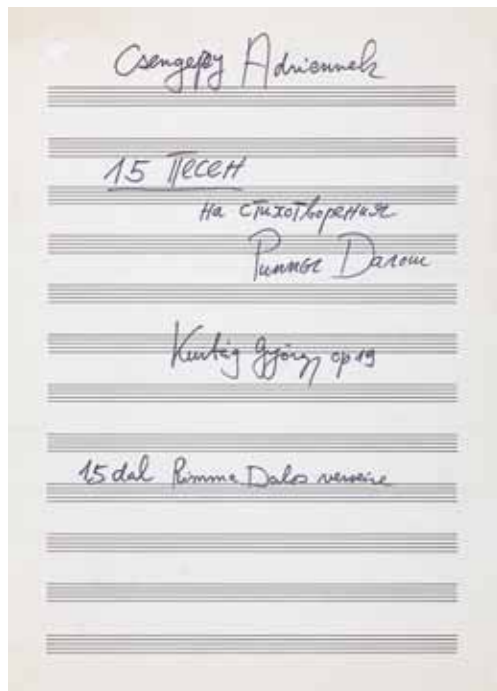 Csengery Adriennek
15 Песен
на стихотворения
Риммы Далош
Kurtág György, op 19
15 dal Rimma Dalos verseire